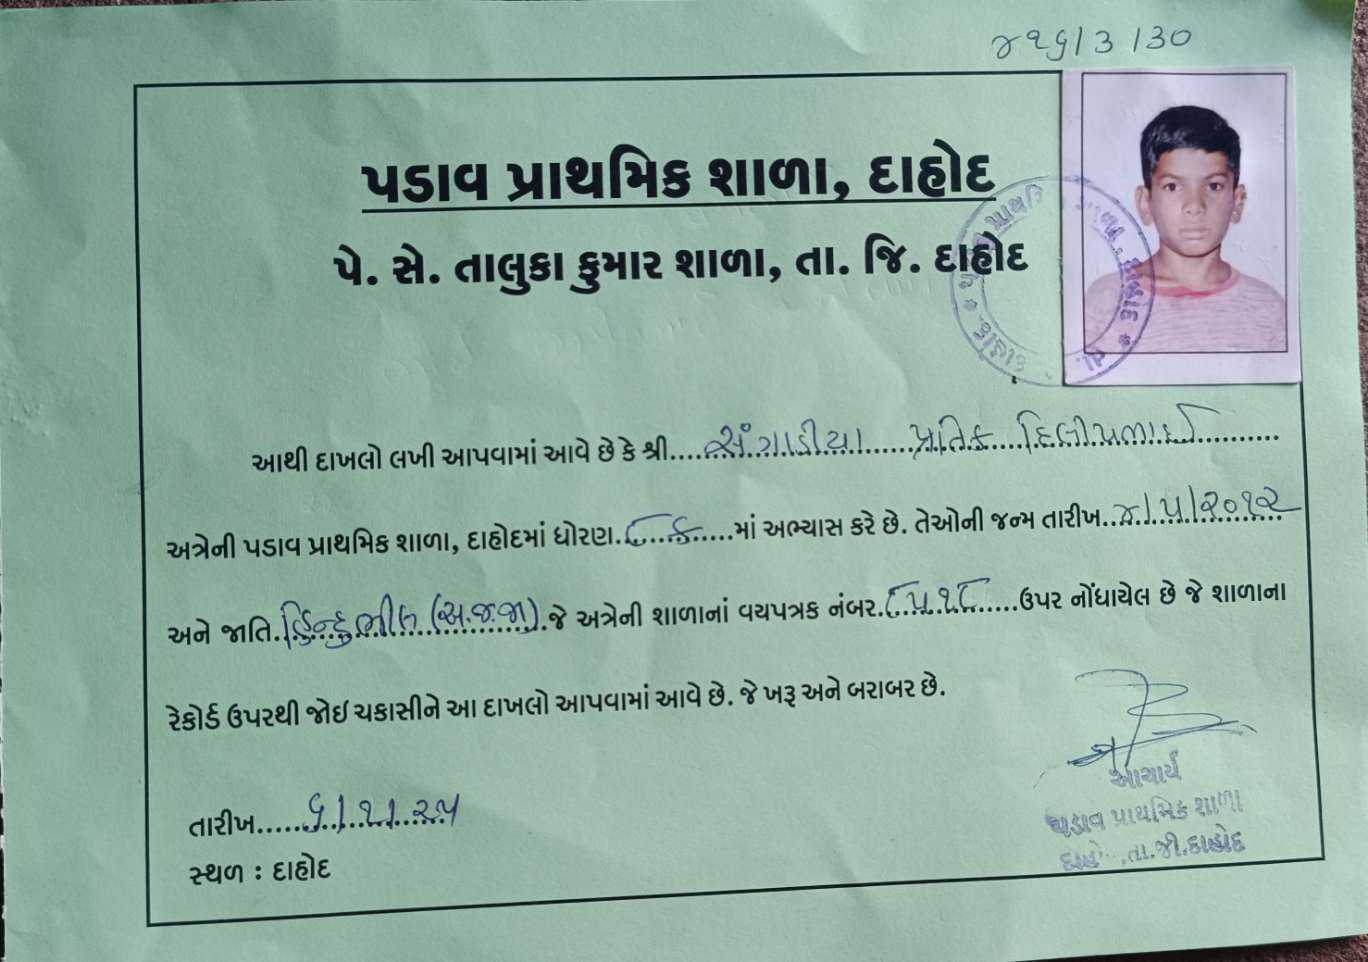 ૪૨૬/3/30
પડાવ પ્રાથમિક શાળા, દાહોદ
પે. સે. તાલુકા કુમાર શાળા, તા. જિ. દાહોદ
આથી દાખલો લખી આપવામાં આવે છે કે શ્રી....સંગાડીયા.....પ્રતિક....દિલીપભાઈ..........
અત્રેની પડાવ પ્રાથમિક શાળા, દાહોદમાં ધોરણ.૮-ક.....માં અભ્યાસ કરે છે. તેઓની જન્મ તારીખ..૪/૫/૨૦૧૨
અને જાતિ.હિન્દુ ભીલ (અ.જ.જા).જે અત્રેની શાળાનાં વયપત્રક નંબર.૮૫૧૮.....ઉપર નોંધાયેલ છે જે શાળાના
રેકોર્ડ ઉપરથી જોઈ ચકાસીને આ દાખલો આપવામાં આવે છે. જે ખરૂ અને બરાબર છે.
તારીખ.....૬/૧/૨૫
સ્થળ : દાહોદ
આચાર્ય
પડાવ પ્રાથમિક શાળા
તા.જી.દાહોદ